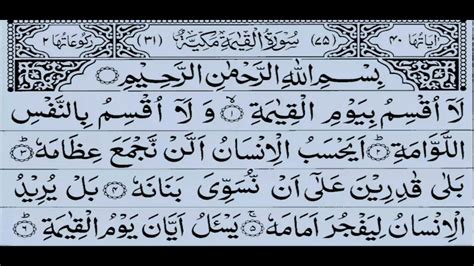 اٰیَاتُهَا ۴۰ (۷۵) سُوْرَةُ الْقِیٰمَةِ مَكِّیَّةٌ (۳۱) رُكُوْعَاتُهَا ۲
بِسْمِ اللّٰهِ الرَّحْمٰنِ الرَّحِیْمِ
لَاۤ اُقْسِمُ بِیَوْمِ الْقِیٰمَةِ ۙ‏﴿۱﴾ وَ لَاۤ اُقْسِمُ بِالنَّفْسِ
اللَّوَّامَةِ ﴿۲﴾ اَیَحْسَبُ الْاِنْسَانُ اَلَّنْ نَّجْمَعَ عِظَامَهٗ ﴿۳﴾
بَلٰى قٰدِرِیْنَ عَلٰۤى اَنْ نُّسَوِّیَ بَنَانَهٗ ﴿۴﴾ بَلْ یُرِیْدُ
الْاِنْسَانُ لِیَفْجُرَ اَمَامَهٗ ﴿۵﴾ یَسْـَٔلُ اَیَّانَ یَوْمُ الْقِیٰمَةِ ﴿۶﴾